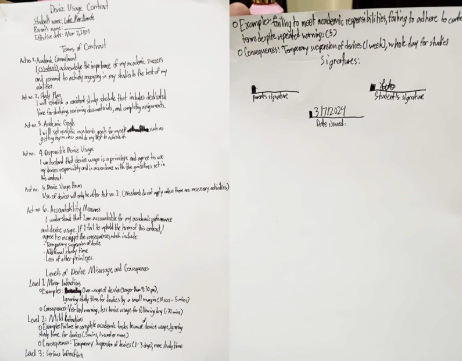 Device Usage Contract
Student's name:
Parent's name:
Effective date: Mar 7, 2024
Terms of Contract
Act no. 1: Academic Commitment
I (student) acknowledge the importance of my academic success
and commit to actively engaging in my studies to the best of my
abilities.
Act no. 2: Study Plan
I will establish a consistent study schedule that includes dedicated
time for studying, reviewing class materials, and completing assignments.
Act no. 3: Academic Goals
I will set realistic academic goals for myself such as
Act no. 4: Responsible Device Usage
I understand that device usage is a privilege and agree to use
my device responsibly and in accordance with the guidelines set in
this contract.
Act no. 5: Device Usage Hours
Use of device will only be after
Act no. 6: Accountability Measures
I understand that I am accountable for my academic performance
and device usage. If I fail to uphold the terms of this contract, I
agree to accept the consequences, which include:
- Temporary suspension of device
- Additional study time
- Loss of other privileges.
Levels of Device Misusage, and Consequences
Level 1: Minor Infraction
O Examples: Over-usage of device (longer than 9:30 pm),
Ignoring study time for studies by a small margin (
O Consequences: Verbal warning, less device usage for following day (-30 mins)
Level 2: Mild Infraction
O Examples: Failure to complete academic tasks device usage, Ignoring
study time for studies
O Consequences: Temporary suspension of device (1-3 days), more study time
Level 3: Serious Infraction
O Examples: failing to meet academic responsibilities, failing to adhere to contract
terms despite repeated warnings (3)
O Consequences: Temporary suspension of devices (1 week), whole day for studies
Signatures:
parent's signature
Student's signature
3/7/2024
Date issued